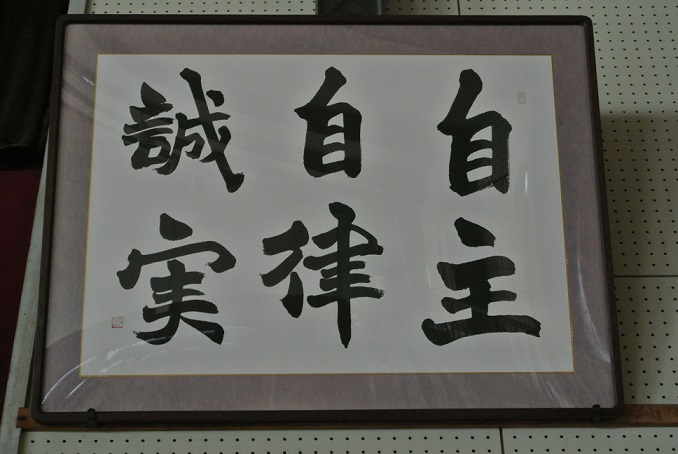 自主
自律
誠実